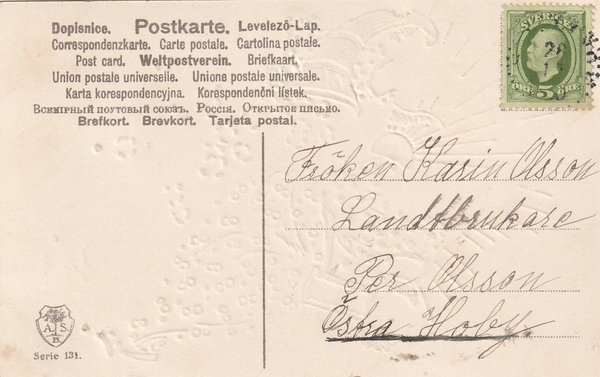 Dopisnice. Postkarte. Levelező-Lap.
Correspondenzkarte. Carte postale. Cartolina postale.
Post card. Weltpostverein. Briefkaart.
Union postale universelle. Unione postale universale.
Karta korespondencyjna. Korespondenční lístek.
Всемірный почтовый союзъ. Россія. Открытое письмо.
Brefkort. Brevkort. Tarjeta postal.
SVERIGE
ÖRE 5 ÖRE
Fröken Karin Olsson
Landtbrukare
Per Olsson
Östra Hoby.
A. S.
B.
Serie 131.